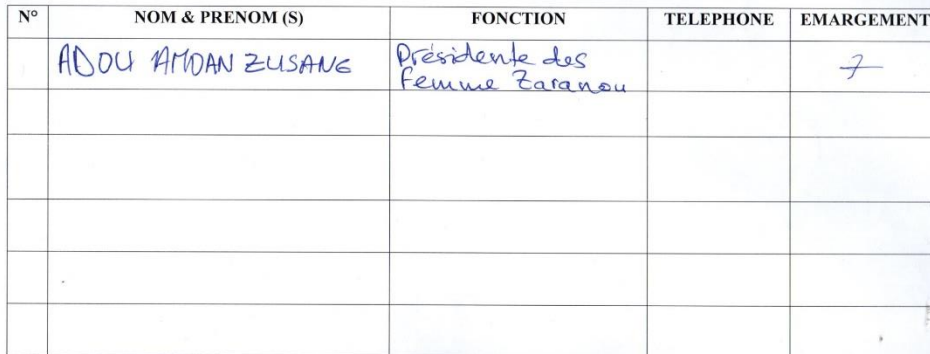 N° NOM & PRENOM (S) FONCTION TELEPHONE EMARGEMENT
ADOU AMOAN ZUSANE Présidente des
Femme Zaranou